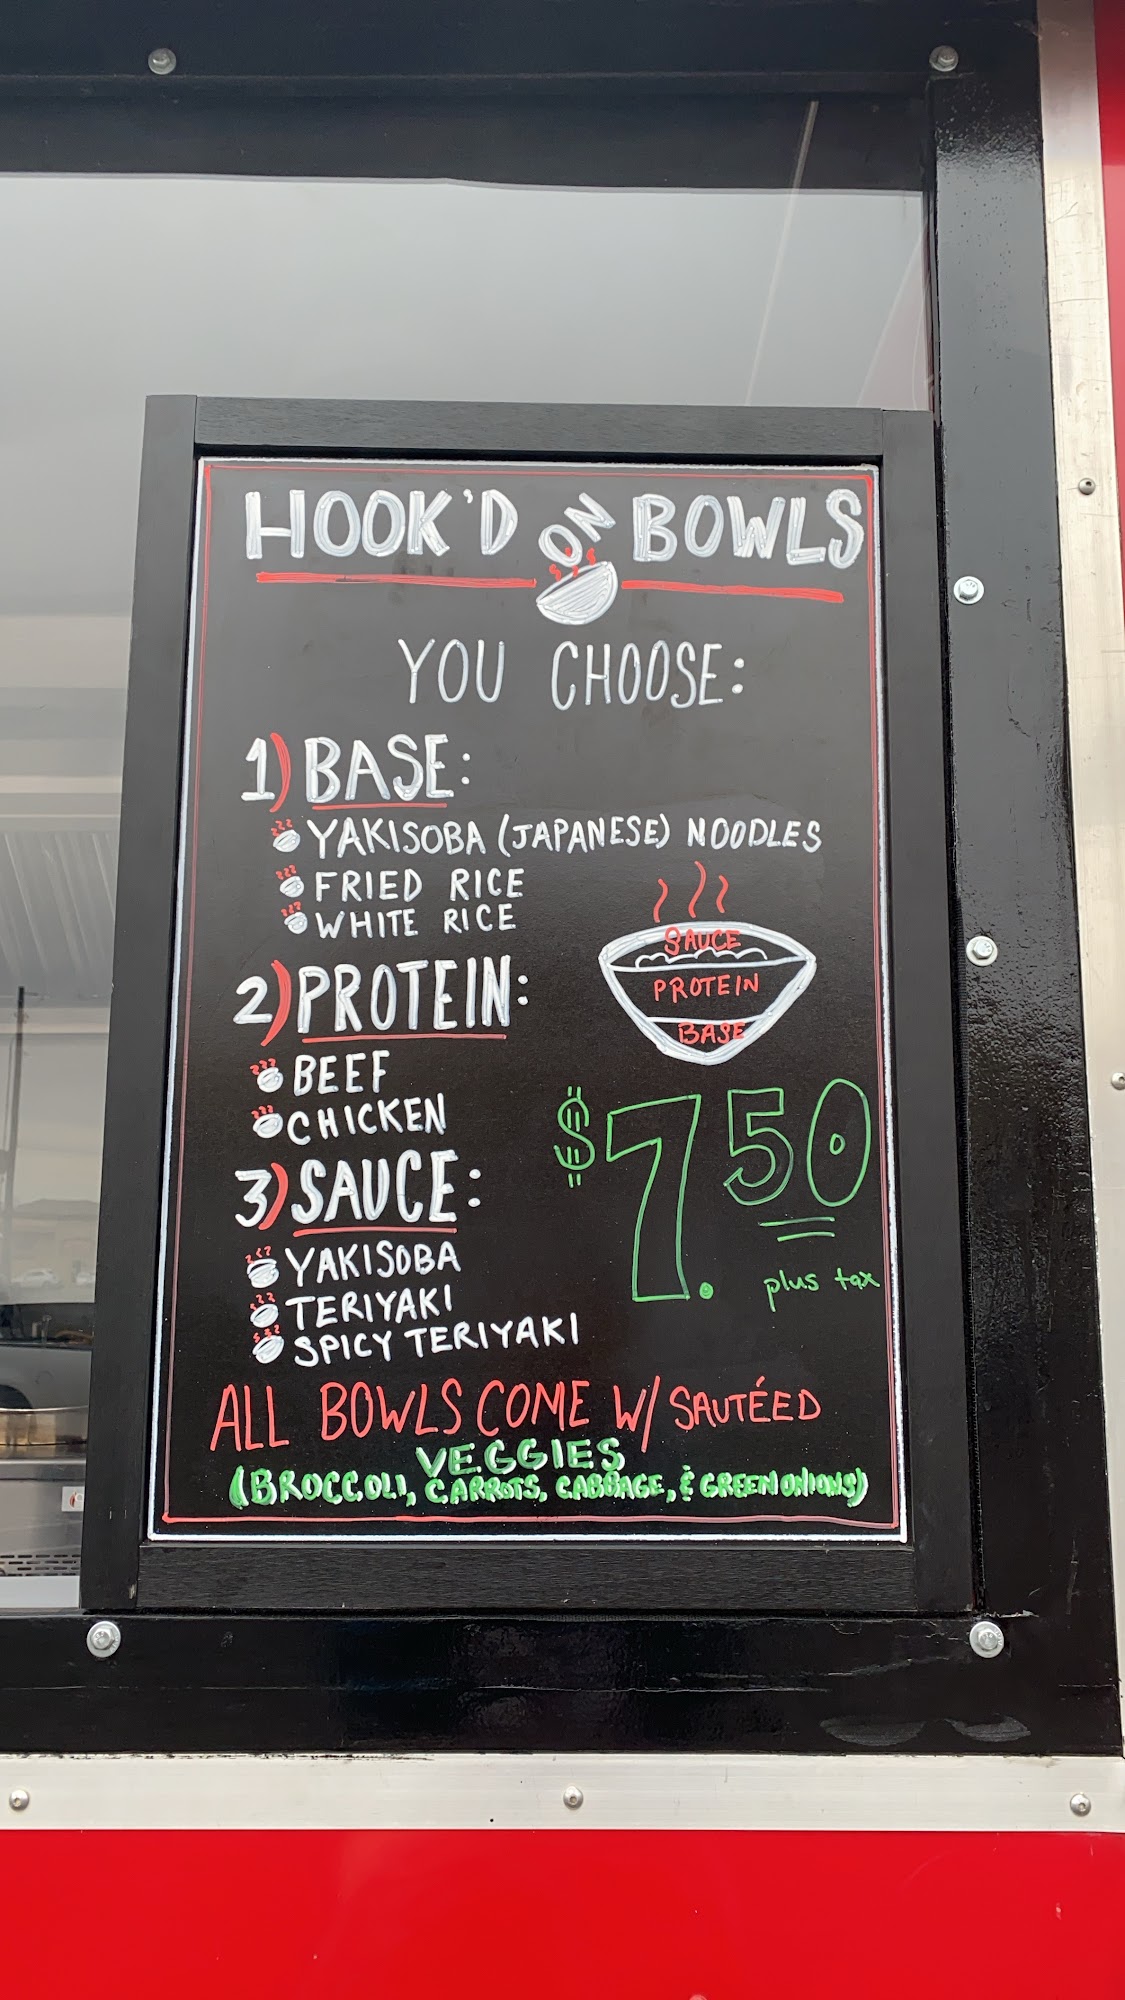 HOOK'D ON BOWLS
YOU CHOOSE:
1) BASE:
YAKISOBA (JAPANESE) NOODLES
FRIED RICE
WHITE RICE
2) PROTEIN:
BEEF
CHICKEN
3) SAUCE:
YAKISOBA
TERIYAKI
SPICY TERIYAKI
SAUCE
PROTEIN
BASE
$7.50
plus tax
ALL BOWLS COME W/ SAUTÉED
VEGGIES
(BROCCOLI, CARROTS, CABBAGE, & GREEN ONIONS)